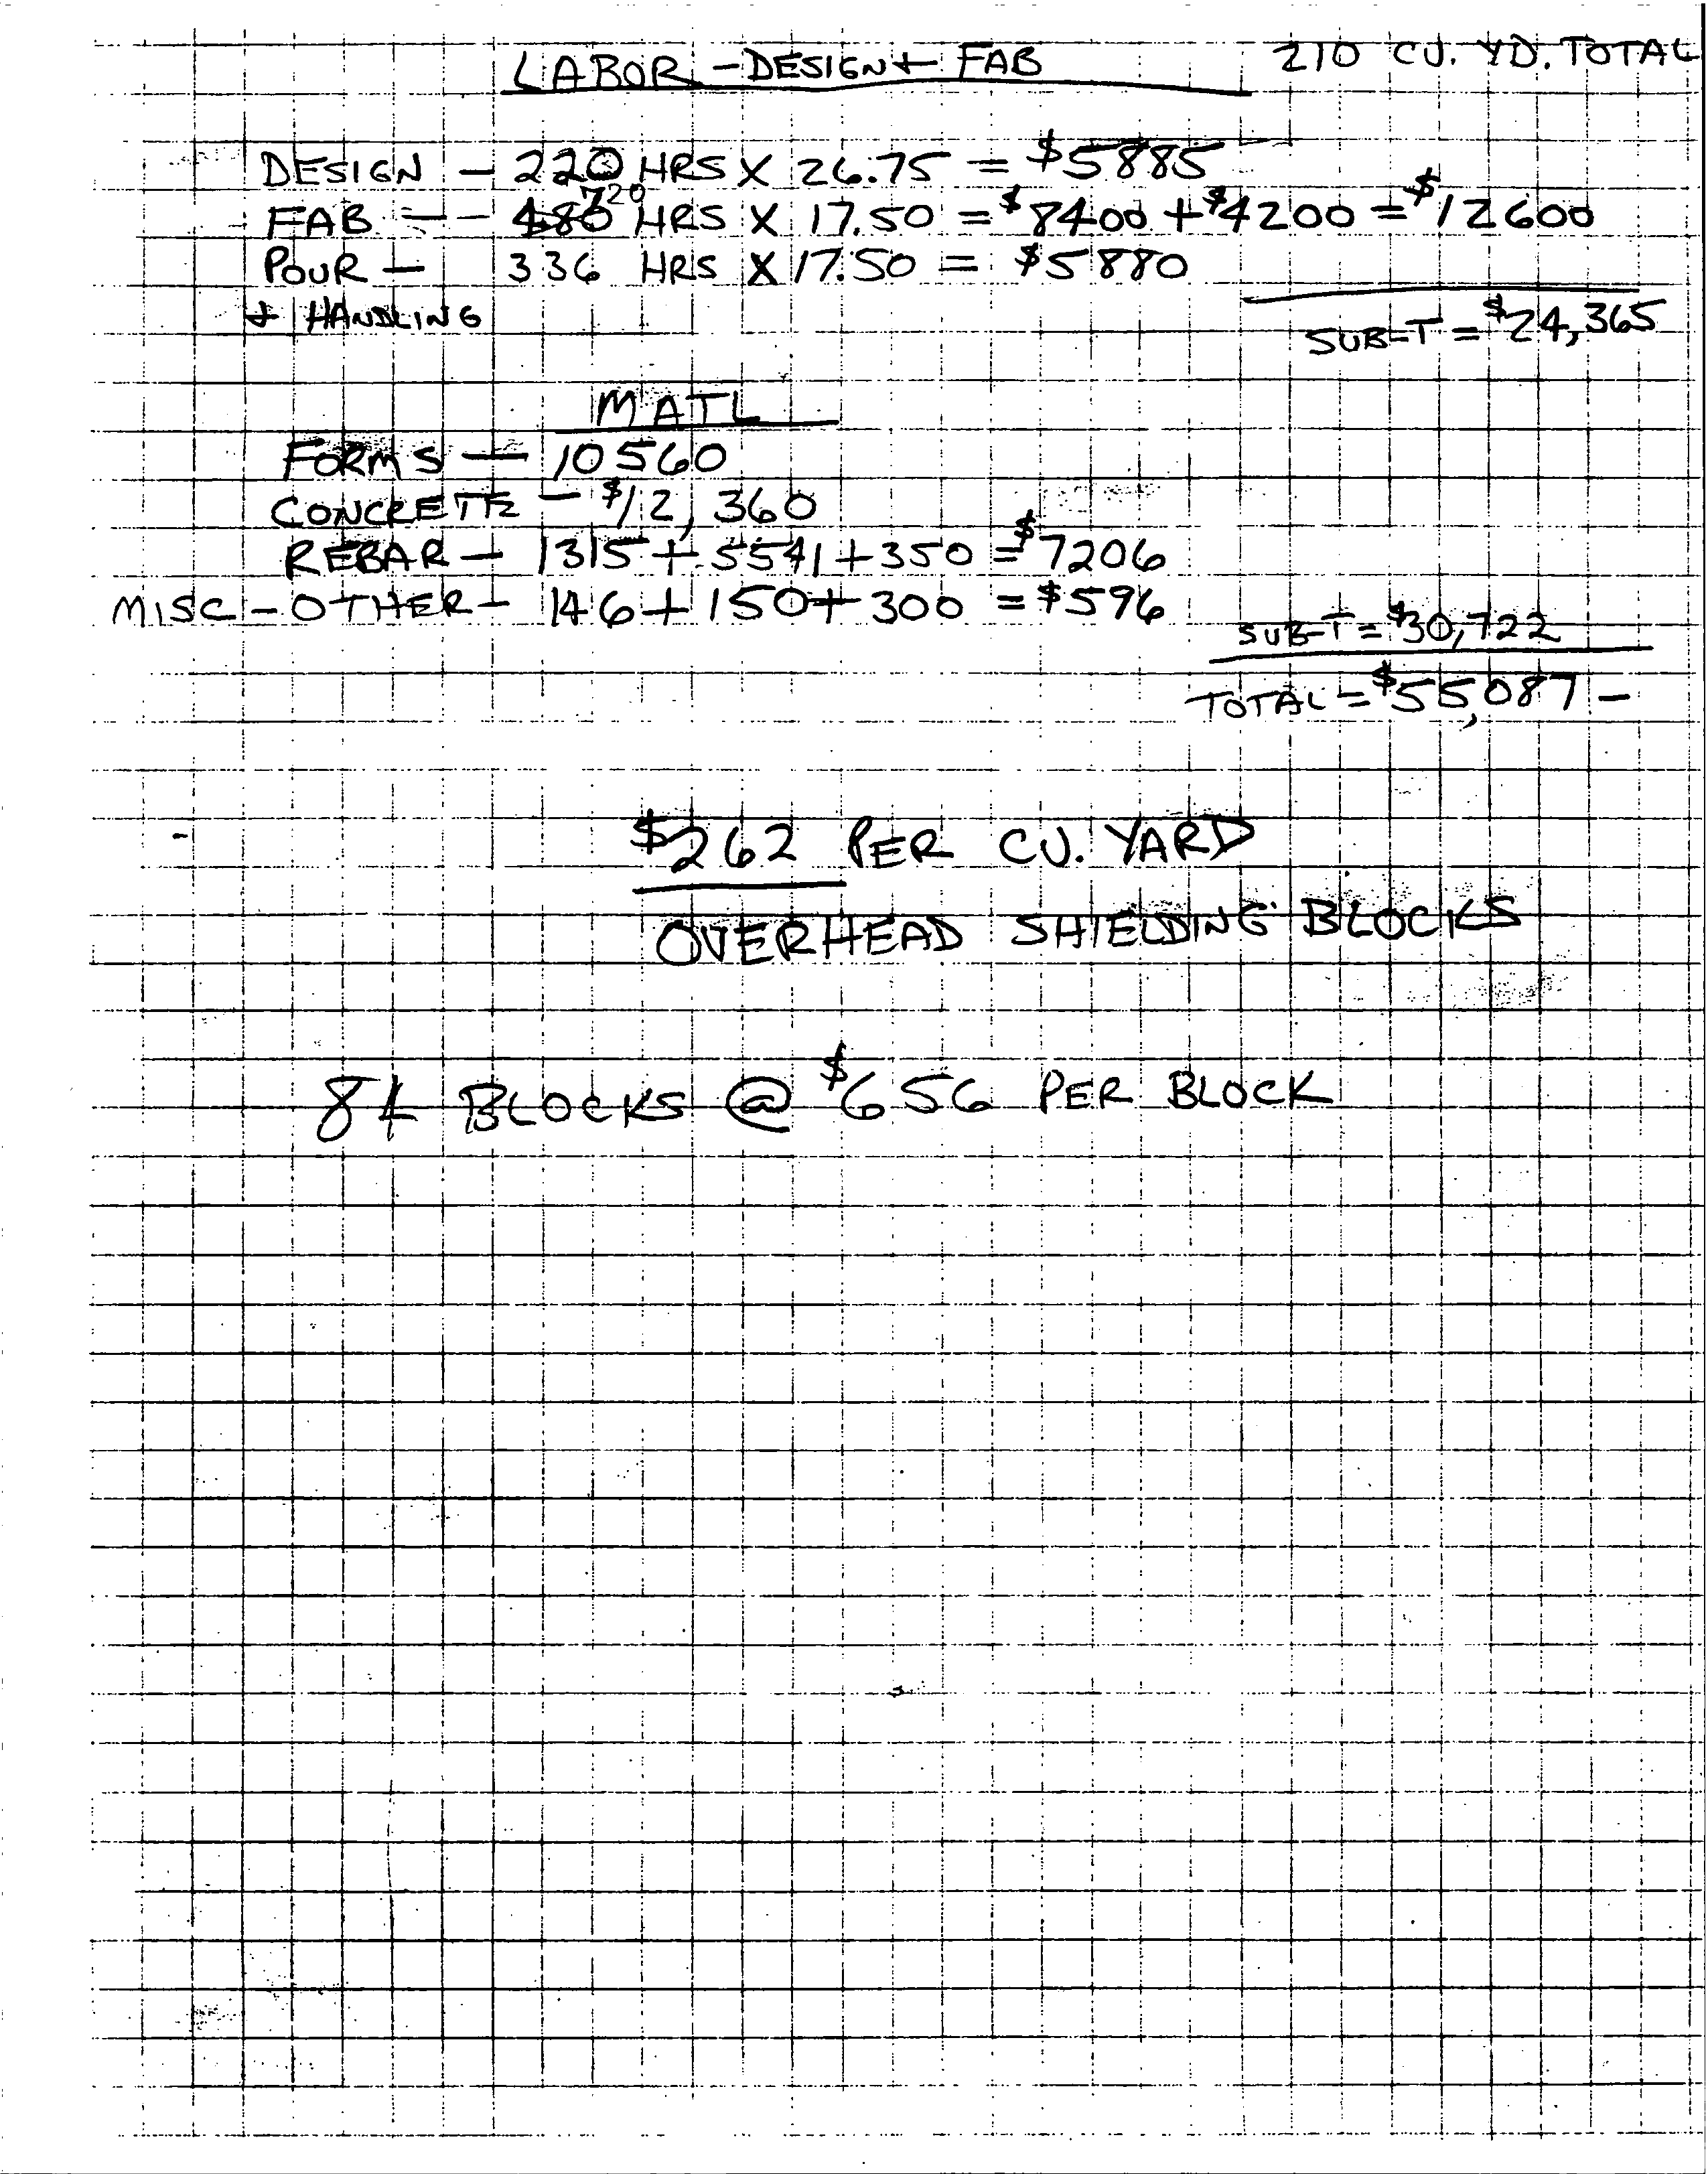 LABOR - DESIGN + FAB 210 CU. YD. TOTAL
DESIGN - 220 HRS X 26.75 = $5885
720
FAB - - 480 HRS X 17.50 = $8400 + $4200 = $12600
POUR - 336 HRS X 17.50 = $5880
+ HANDLING
SUB-T = $24,365
MATL
FORMS - 10560
CONCRETE - $12,360
REBAR - 1315 + 5541 + 350 = $7206
MISC - OTHER - 146 + 150 + 300 = $596
SUB-T = $30,722
TOTAL = $55,087 -
$262 PER CU. YARD
OVERHEAD SHIELDING BLOCKS
84 BLOCKS @ $656 PER BLOCK